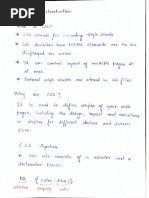 Introduction
What is CSS?
• CSS stands for Cascading Style Sheets
• CSS describes how HTML elements are to be
displayed on screen.
• It can control layout of multiple pages all
at once.
• External style sheets are stored in CSS files.
Why use CSS?
It is used to define styles of your web
pages, including the design, layout and variations
in display for different devices and screen
sizes.
CSS Syntax
A CSS rule consists of a selector and a
declaration block.
h1 { color: blue; }
selector property value